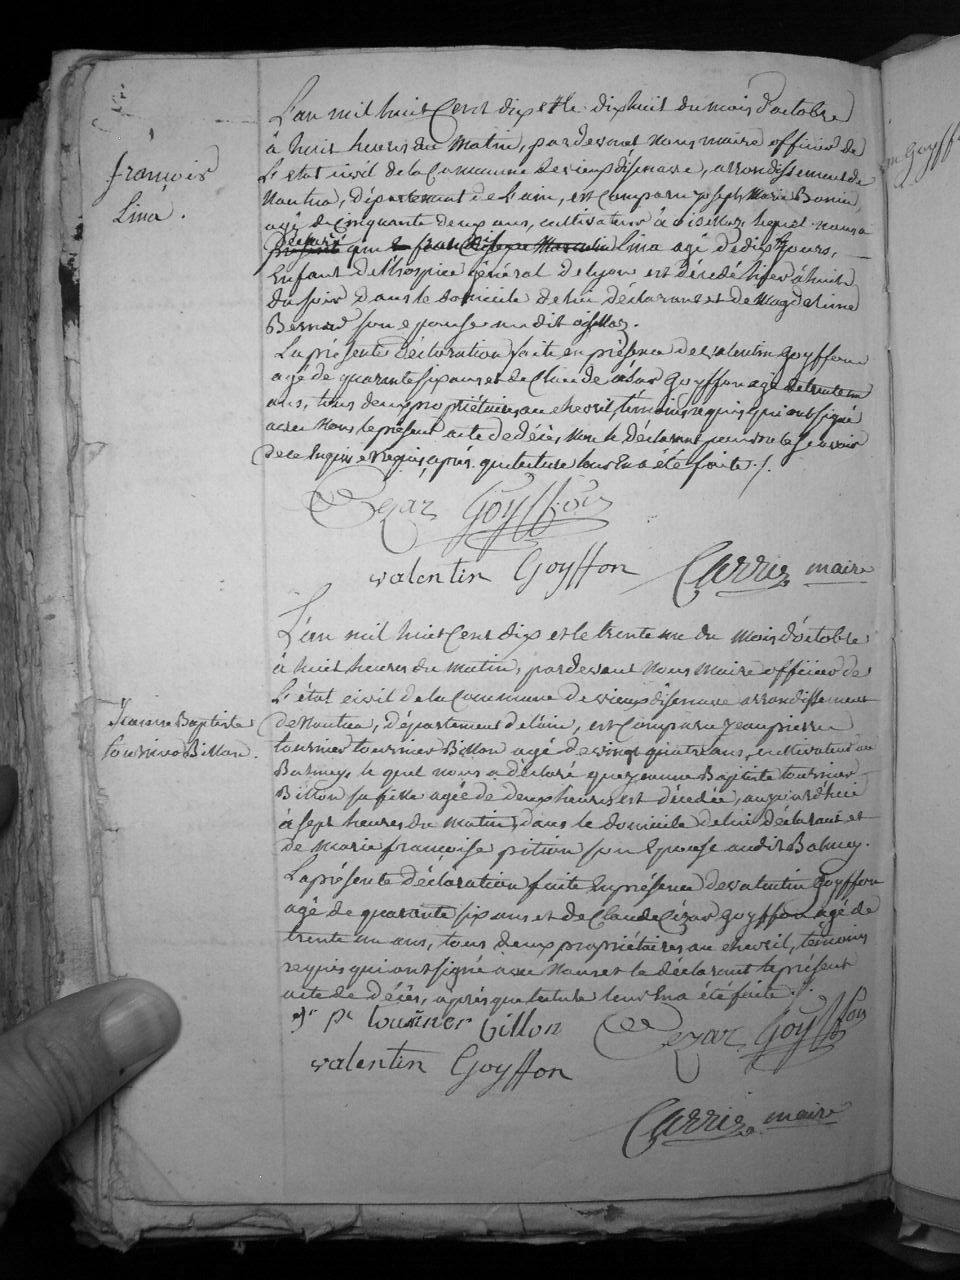 L'an mil huit Cent dix et le dixhuit du mois d'octobre
à huit heures du Matin, pardevant nous maire officier de
L'état civil de la Commune de vieux disenave, arrondissement de
Nantua, département de L'ain, est Comparu joseph Marie
agé de Cinquante deux ans, cultivateur à lequel nous a
françois
Lina.
déclaré que Lina agé de dix jours,
Enfant de l'hospice général de lyon est décédé hier à huit
du soir dans le domicile de lui déclarant et de Magdelaine
Bernard son epouse audit
La présente déclaration faite en présence de valentin Goyffon
agé de quarante six ans et de Claude césar Goyffon agé de trente un
ans, tous deux propriétaires au chevril, témoins requis qui ont signé
avec Nous le présent acte de décès, Non le déclarant pour ne le scavoir
de ce Enquis et Requis, après que lecture leur En a été faite ./.
Cezar Goyffon
valentin Goyffon Carrier maire
L'an mil huit Cent dix et le trente un du mois d'octobre
à huit heures du matin, pardevant Nous Maire officier de
L'état civil de la Commune de vieux disenave arrondissement
Jeanne Baptiste
tournier Billon.
de Nantua, département de l'ain, est Comparu jean pierre
tournier tournier Billon agé de vingt quatre ans, cultivateur au
Balmey, le quel nous a déclaré que jeanne Baptiste tournier
Billon sa fille agée de deux heures est décédée, aujourd'hui
à sept heures du matin, dans le domicile de lui déclarant et
de Marie françoise pition son Epouse audit Balmey.
La présente déclaration faite En présence de valentin Goyffon
agé de quarante six ans et de Claude Cézar Goyffon agé de
trente un ans, tous deux propriétaires au chevril, témoins
requis qui ont signé avec Nous et le déclarant le présent
acte de décès, après que lecture leur En a été faite ./.
jn pe tournier billon Cezar Goyffon
valentin Goyffon
Carrier maire